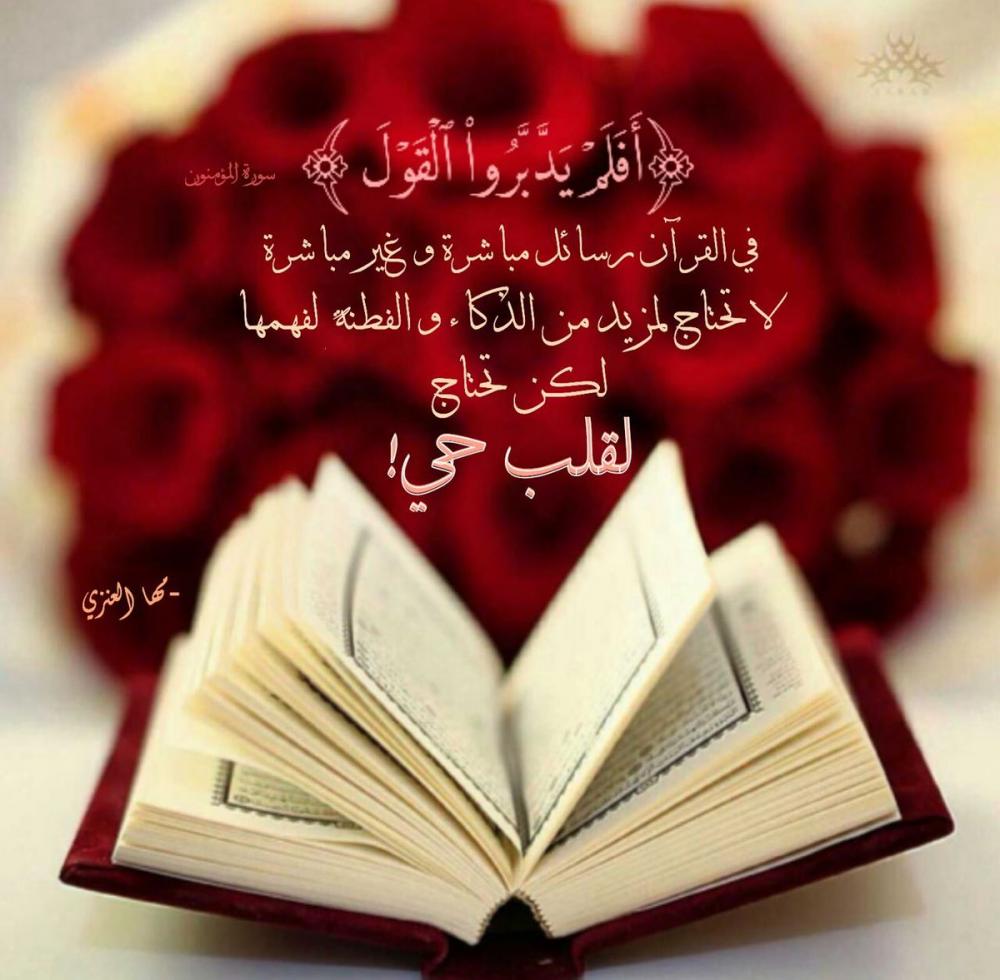 ﴿أَفَلَمْ يَدَّبَّرُوا۟ ٱلْقَوْلَ﴾ سورة المؤمنون
في القرآن رسائل مباشرة و غير مباشرة
لا تحتاج لمزيد من الذكاء و الفطنة لفهمها
لكن تحتاج
لقلب حي!
-مها العنزي